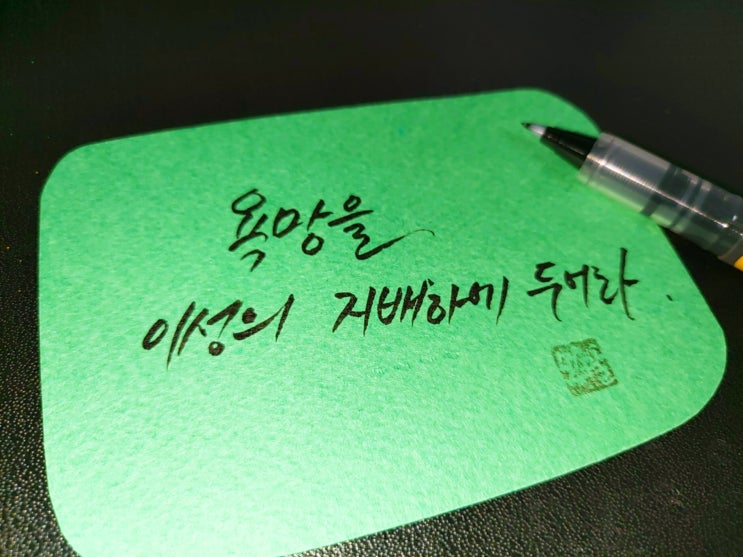 욕망을
이성의 지배하에 두어라.